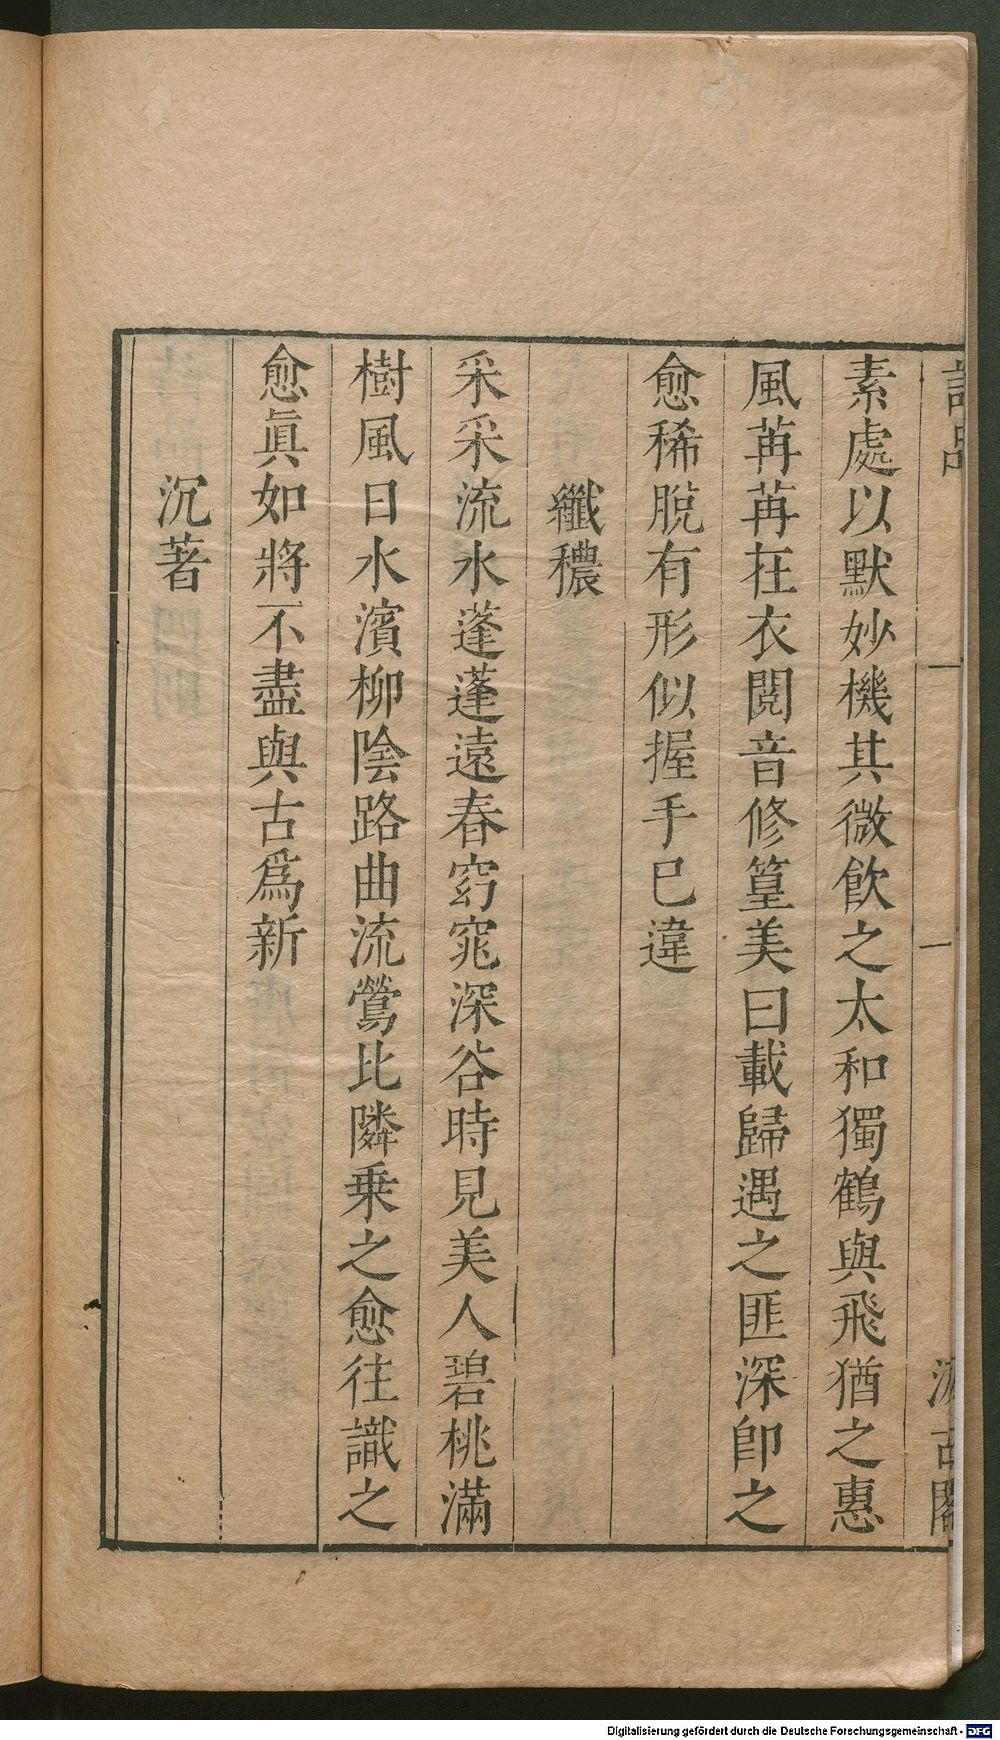 詩品 一 汲古閣
素處以默妙機其微飲之太和獨鶴與飛猶之惠
風苒苒在衣閱音修篁美曰載歸遇之匪深卽之
愈稀脫有形似握手已違
纖穠
采采流水蓬蓬遠春窈窕深谷時見美人碧桃滿
樹風日水濱柳陰路曲流鶯比隣乗之愈往識之
愈眞如將不盡與古爲新
沉著
Digitalisierung gefördert durch die Deutsche Forschungsgemeinschaft - DFG